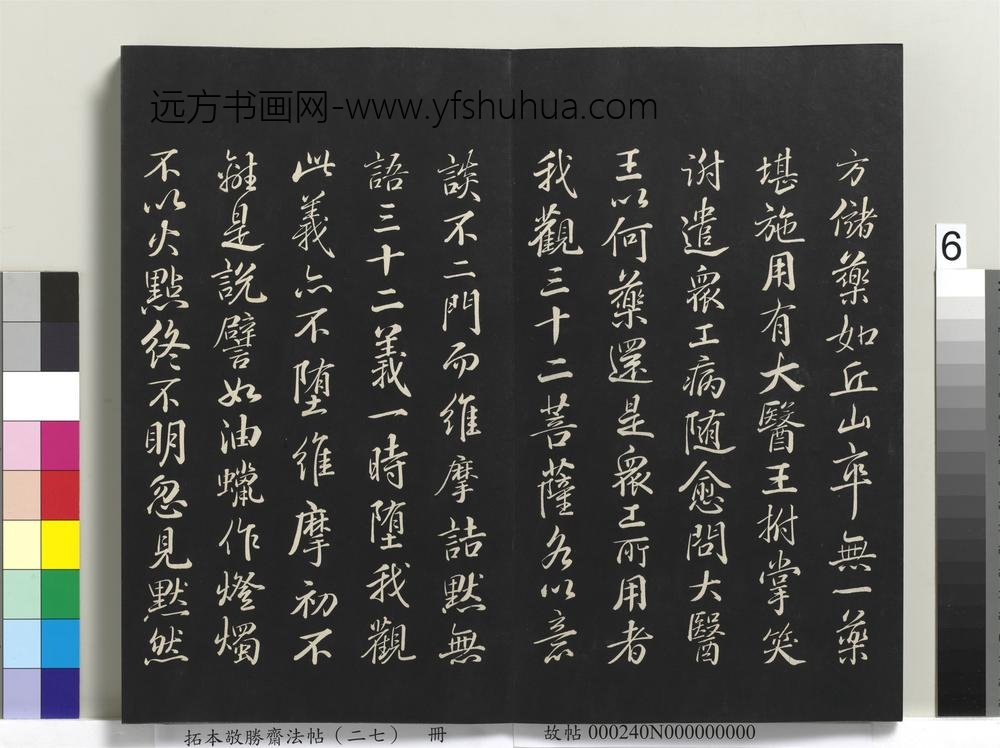 远方书画网-www.yfshuhua.com
方儲藥如丘山卒無一藥
堪施用有大醫王拊掌笑
謝遣衆工病随愈問大醫
王以何藥還是衆工所用者
我觀三十二菩薩各以意
談不二門而維摩詰默無
語三十二義一時墮我觀
此義亦不墮維摩初不
離是說譬如油蠟作燈燭
不以火點終不明忽見默然
6
拓本敬勝齋法帖(二七) 冊
故帖 000240N000000000